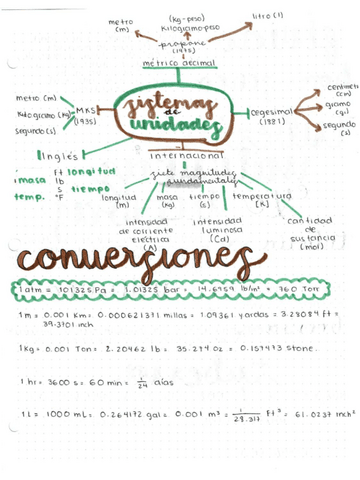 metro
(m)
(kg-peso)
Kilogramo peso
litro (l)
propone
(1795)
métrico decimal
metro (m)
Kilogramo (kg)
segundo (s)
MKS
(1935)
sistemas
de
unidades
cegesimal
(1881)
centímetro
(cm)
gramo
(g)
segundo
(s)
Inglés
ft longitud
masa lb
s tiempo
temp. °F
Internacional
siete magnitudes
fundamentales
longitud
(m)
masa
(kg)
tiempo
(s)
temperatura
[K]
intensidad
de corriente
eléctrica
(A)
intensidad
luminosa
(Cd)
cantidad
de
sustancia
(mol)
conversiones
1 atm = 101325 Pa = 1.01325 bar = 14.6959 lb/in² = 760 Torr
1 m = 0.001 Km = 0.000621371 millas = 1.09361 yardas = 3.28084 ft =
39.3701 inch
1 kg = 0.001 Ton = 2.20462 lb = 35.274 oz = 0.157473 stone.
1 hr = 3600 s = 60 min = 1/24 días
1 L = 1000 mL = 0.264172 gal = 0.001 m³ = 1/28.317 ft³ = 61.0237 inch³